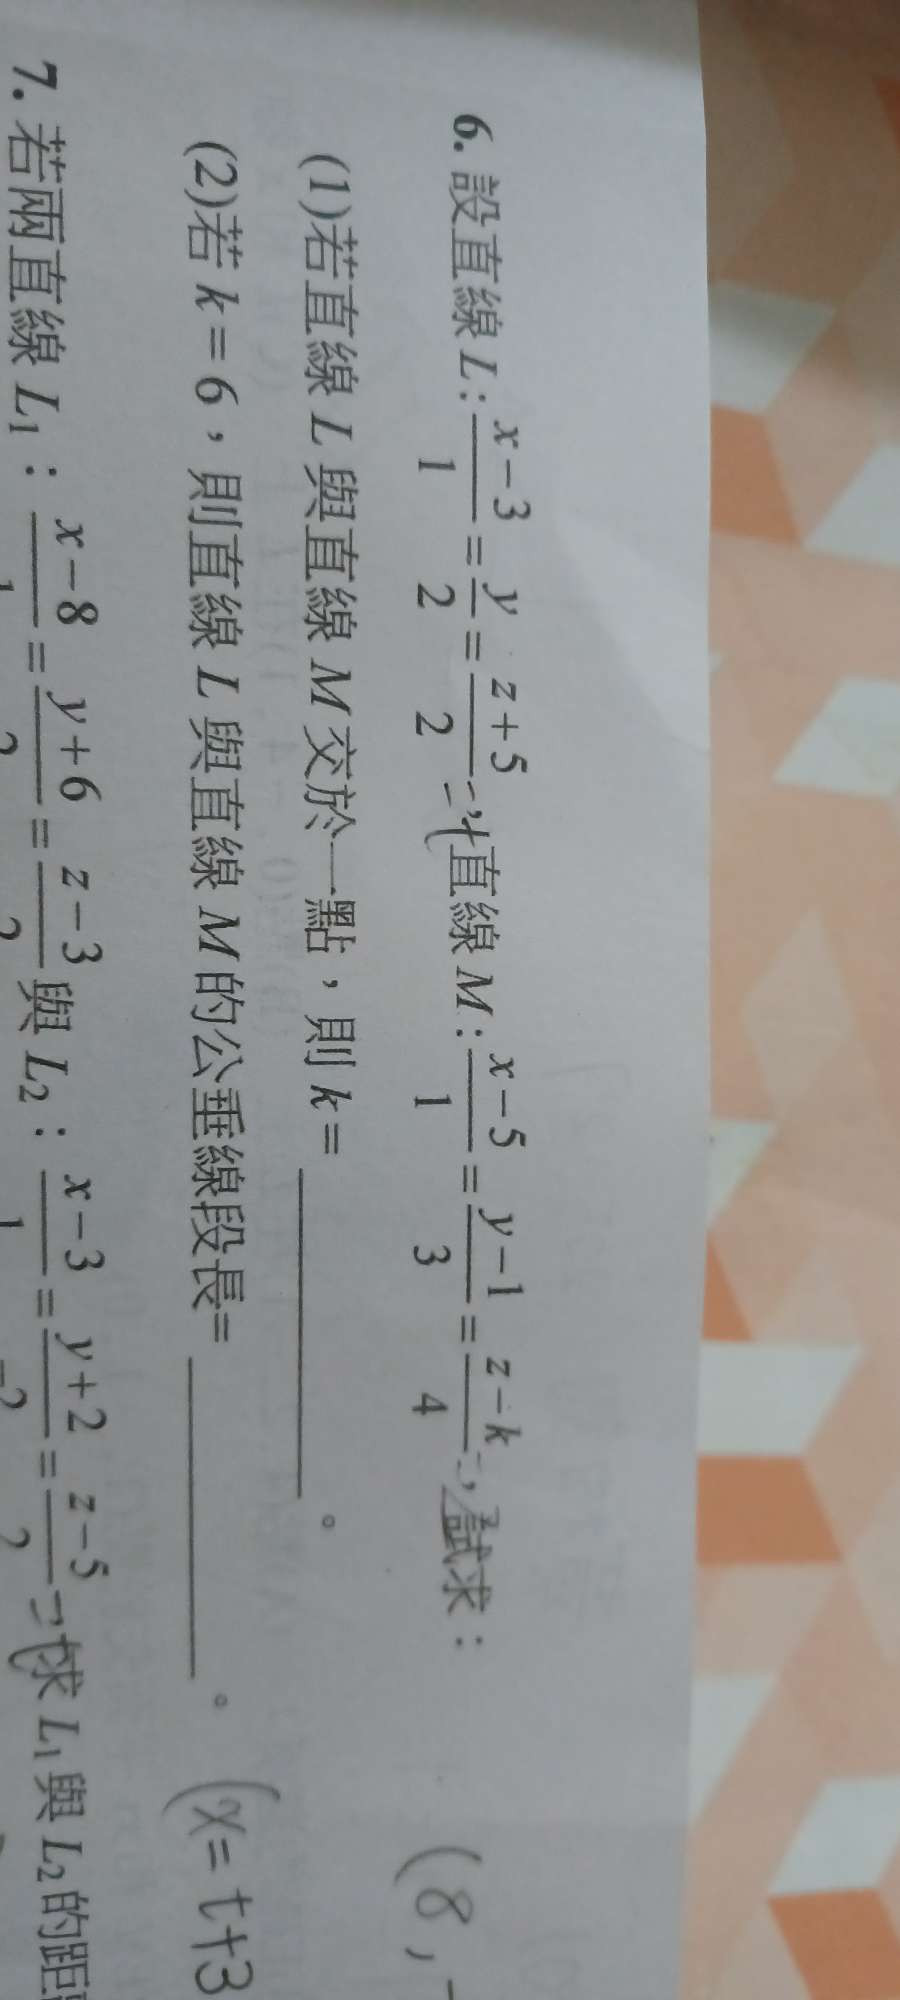 6. 設直線 L : (x-3)/1 = y/2 = (z+5)/2 , 直線 M : (x-5)/1 = (y-1)/3 = (z-k)/4 , 試求：
(8 ,
(1)若直線 L 與直線 M 交於一點，則 k = ________ 。
(2)若 k = 6，則直線 L 與直線 M 的公垂線段長= ________ 。
(x = t+3
7. 若兩直線 L₁ : (x-8)/1 = (y+6)/2 = (z-3)/2 與 L₂ : (x-3)/1 = (y+2)/-2 = (z-5)/2 , 求 L₁ 與 L₂ 的距